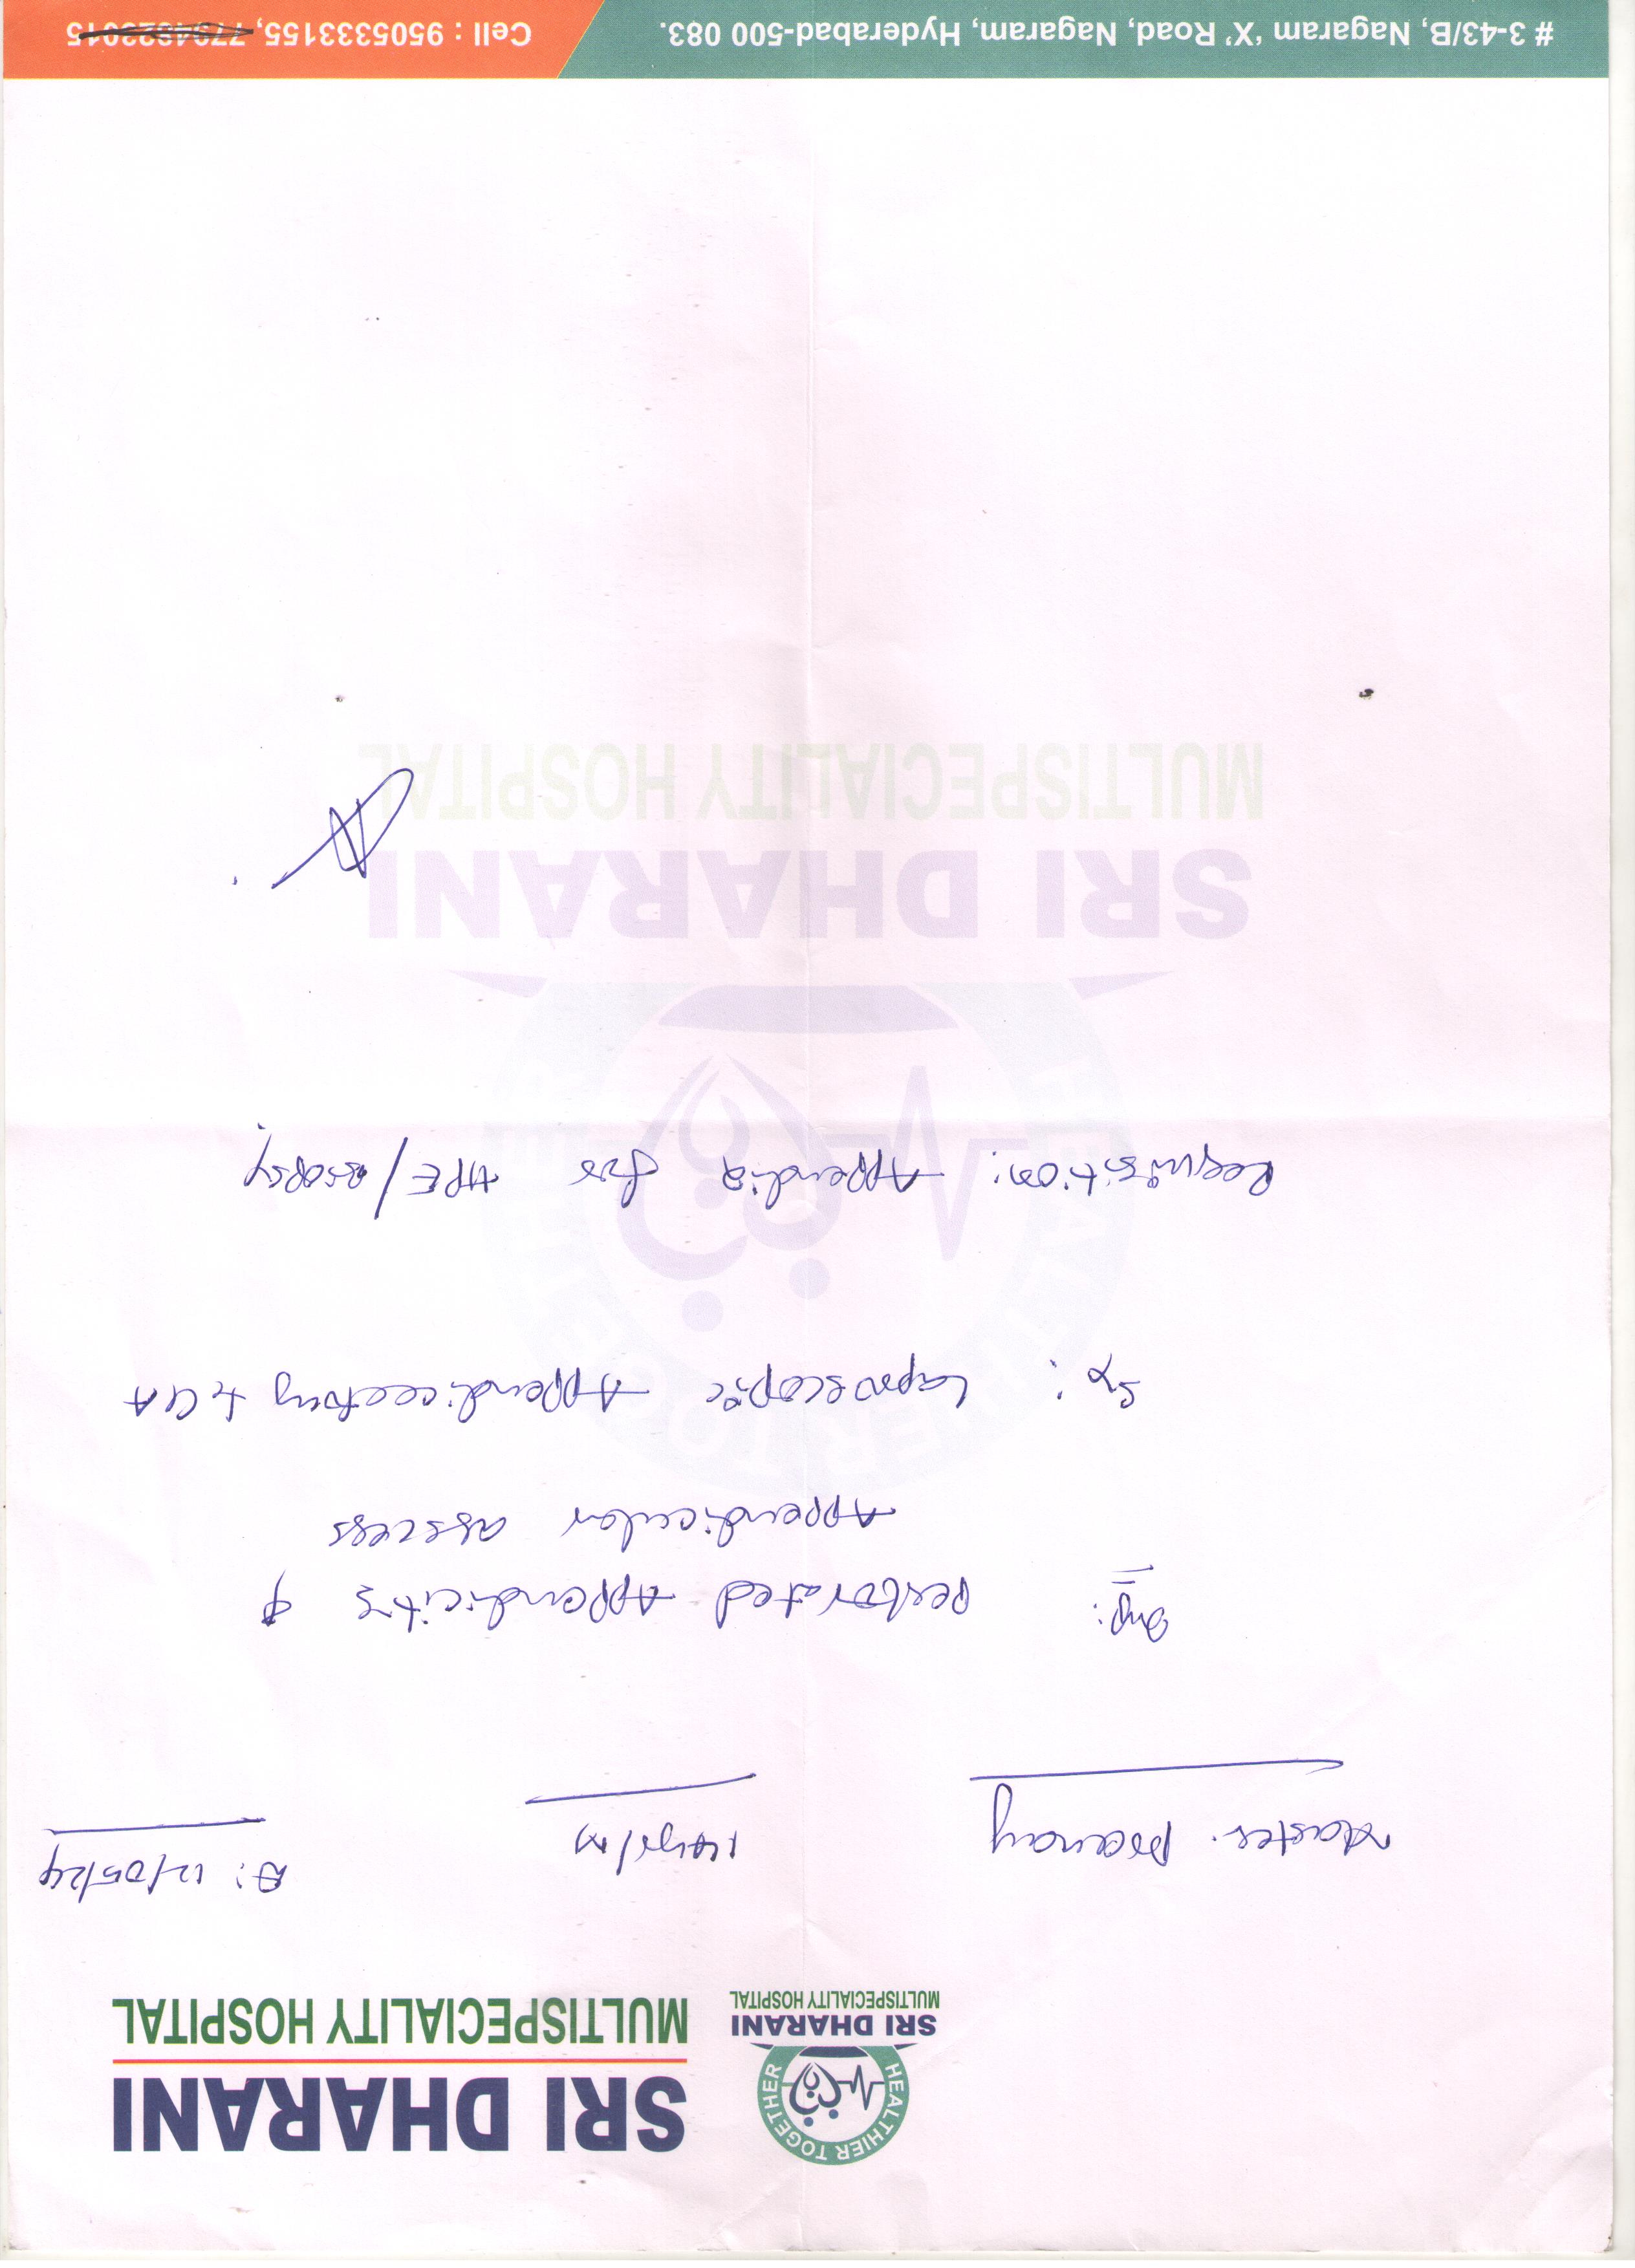 HEALTHIER TOGETHER
SRI DHARANI
MULTISPECIALITY HOSPITAL
SRI DHARANI
MULTISPECIALITY HOSPITAL
Master. Pranay 14yr/M D: 12/05/24
Perforated Appendicitis
Appendicular abscess
Sx: Laproscopic Appendicectomy
Requisition: Appendix for HPE/Biopsy
SRI DHARANI
MULTISPECIALITY HOSPITAL
# 3-43/B, Nagaram 'X' Road, Nagaram, Hyderabad-500 083. Cell : 9505333155,